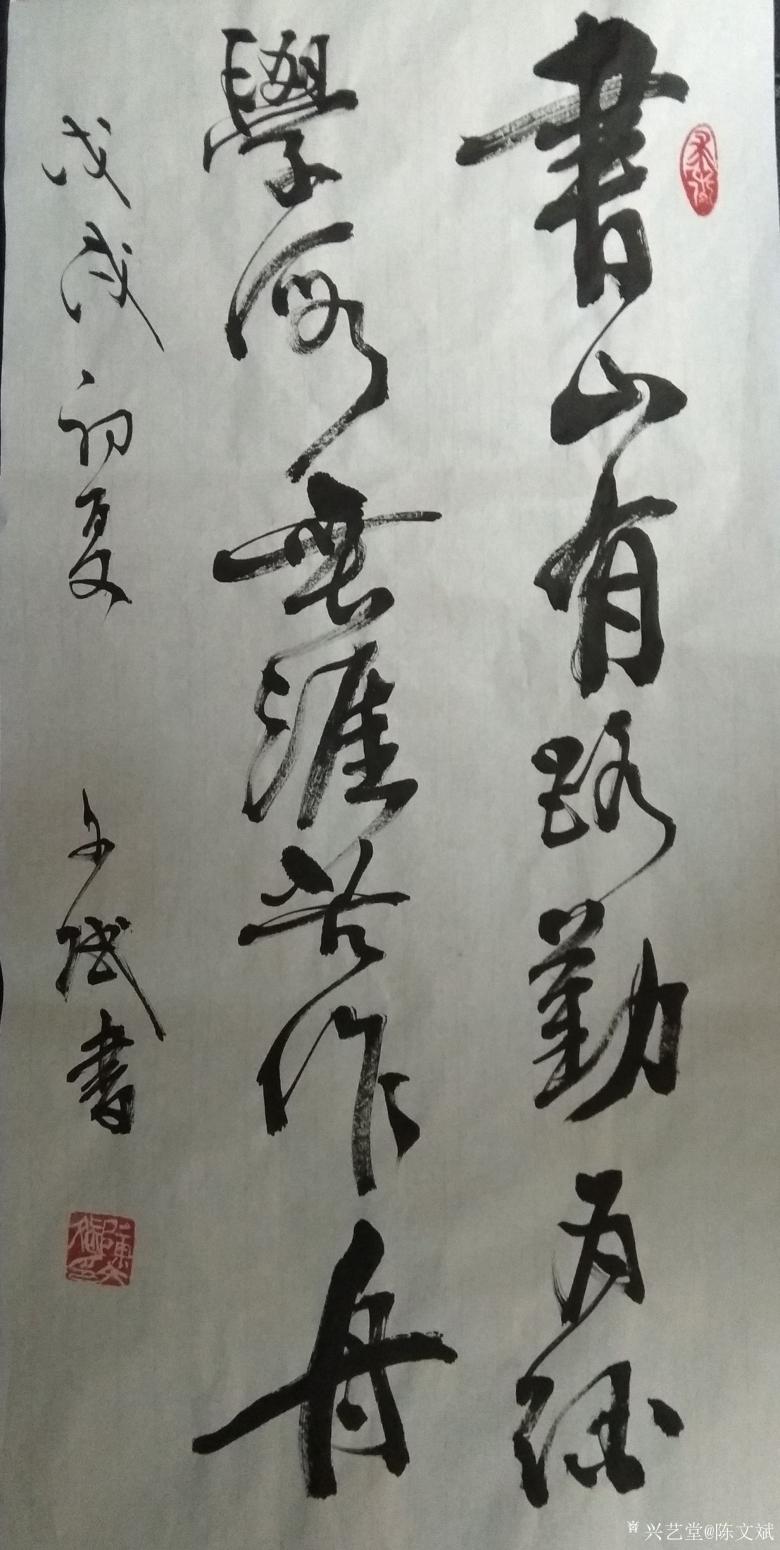 書山有路勤為徑
學海無涯苦作舟
戊戌初夏
文斌書
兴艺堂@陈文斌